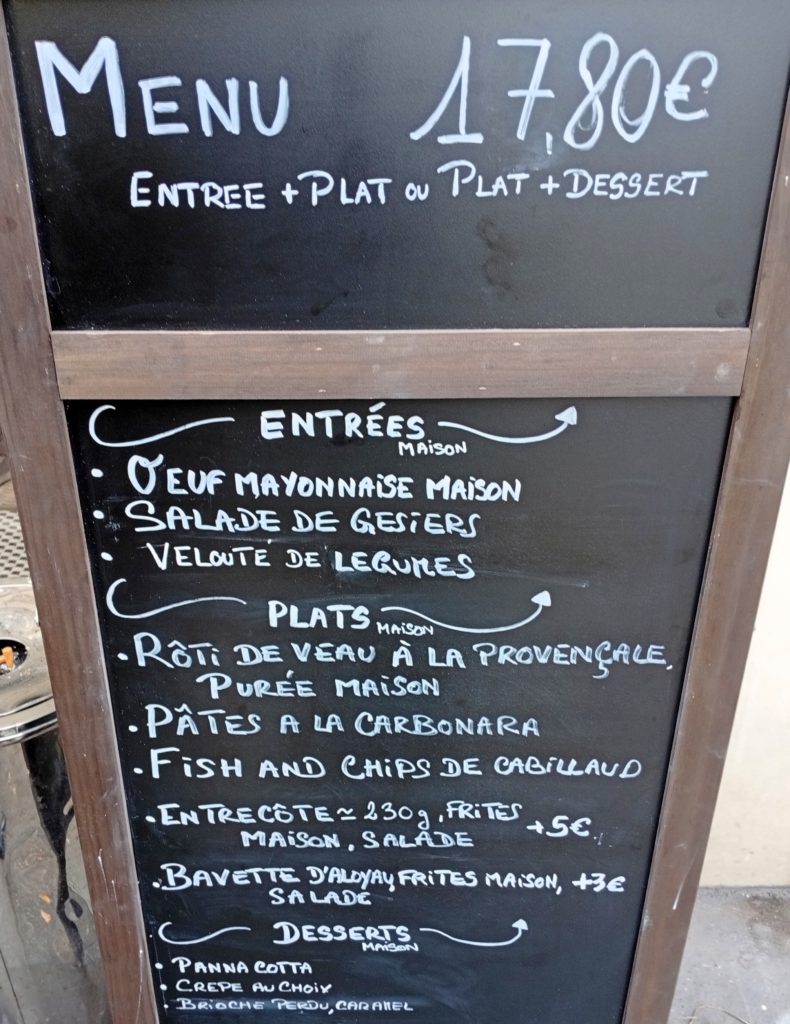 MENU 17,80€
ENTREE + PLAT OU PLAT + DESSERT
ENTRÉES
MAISON
• OEUF MAYONNAISE MAISON
• SALADE DE GESIERS
• VELOUTÉ DE LEGUMES
PLATS
MAISON
• RÔTI DE VEAU À LA PROVENÇALE,
PURÉE MAISON
• PÂTES A LA CARBONARA
• FISH AND CHIPS DE CABILLAUD
• ENTRECÔTE ≃ 230g, FRITES
MAISON, SALADE +5€
• BAVETTE D'ALOYAU, FRITES MAISON, +3€
SALADE
DESSERTS
MAISON
• PANNA COTTA
• CREPE AU CHOIX
• BRIOCHE PERDU, CARAMEL